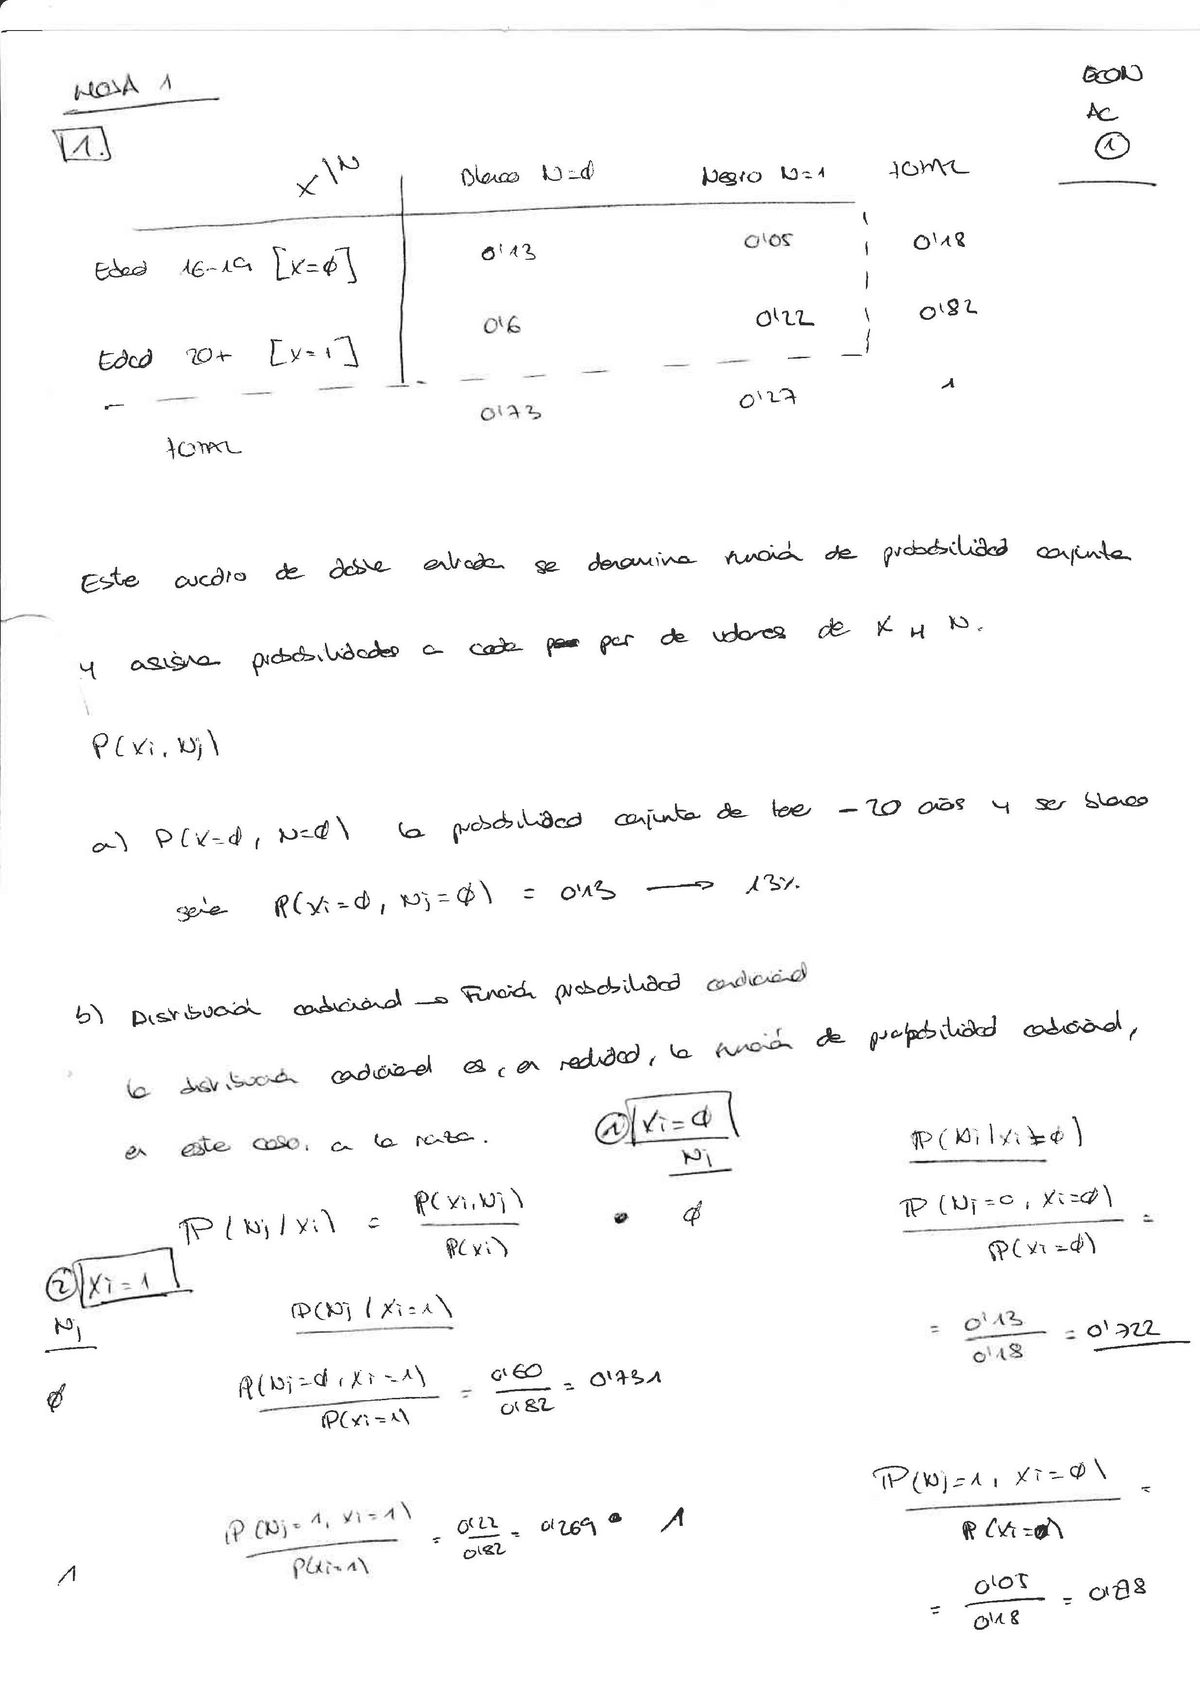 HOJA 1
ECON
AC
①
1.
X|N Blanco N=0 Negro N=1 TOTAL
Edad 16-19 [X=0] 0'13 0'05 0'18
Edad 20+ [X=1] 0'6 0'22 0'82
TOTAL 0'73 0'27 1
Este cuadro de doble entrada se denomina función de probabilidad conjunta
y asigna probabilidades a cada par de valores de X y N.
P(Xi, Nj)
a) P(X=0, N=0) la probabilidad conjunta de tener -20 años y ser blanco
sería P(Xi=0, Nj=0) = 0'13 → 13%.
b) Distribución condicional → Función probabilidad condicional
la distribución condicional es, en realidad, la función de probabilidad condicional,
en este caso, a la raza.
① Xi=0
Nj P(Nj|Xi=0)
P(Nj/Xi) = P(Xi,Nj) / P(Xi)
0 P(Nj=0, Xi=0) / P(Xi=0) =
= 0'13 / 0'18 = 0'722
② Xi=1
Nj P(Nj/Xi=1)
0 P(Nj=0, Xi=1) / P(Xi=1) = 0'60 / 0'82 = 0'731
1 P(Nj=1, Xi=1) / P(Xi=1) = 0'22 / 0'82 = 0'269
1 P(Nj=1, Xi=0) / P(Xi=0) =
= 0'05 / 0'18 = 0'278